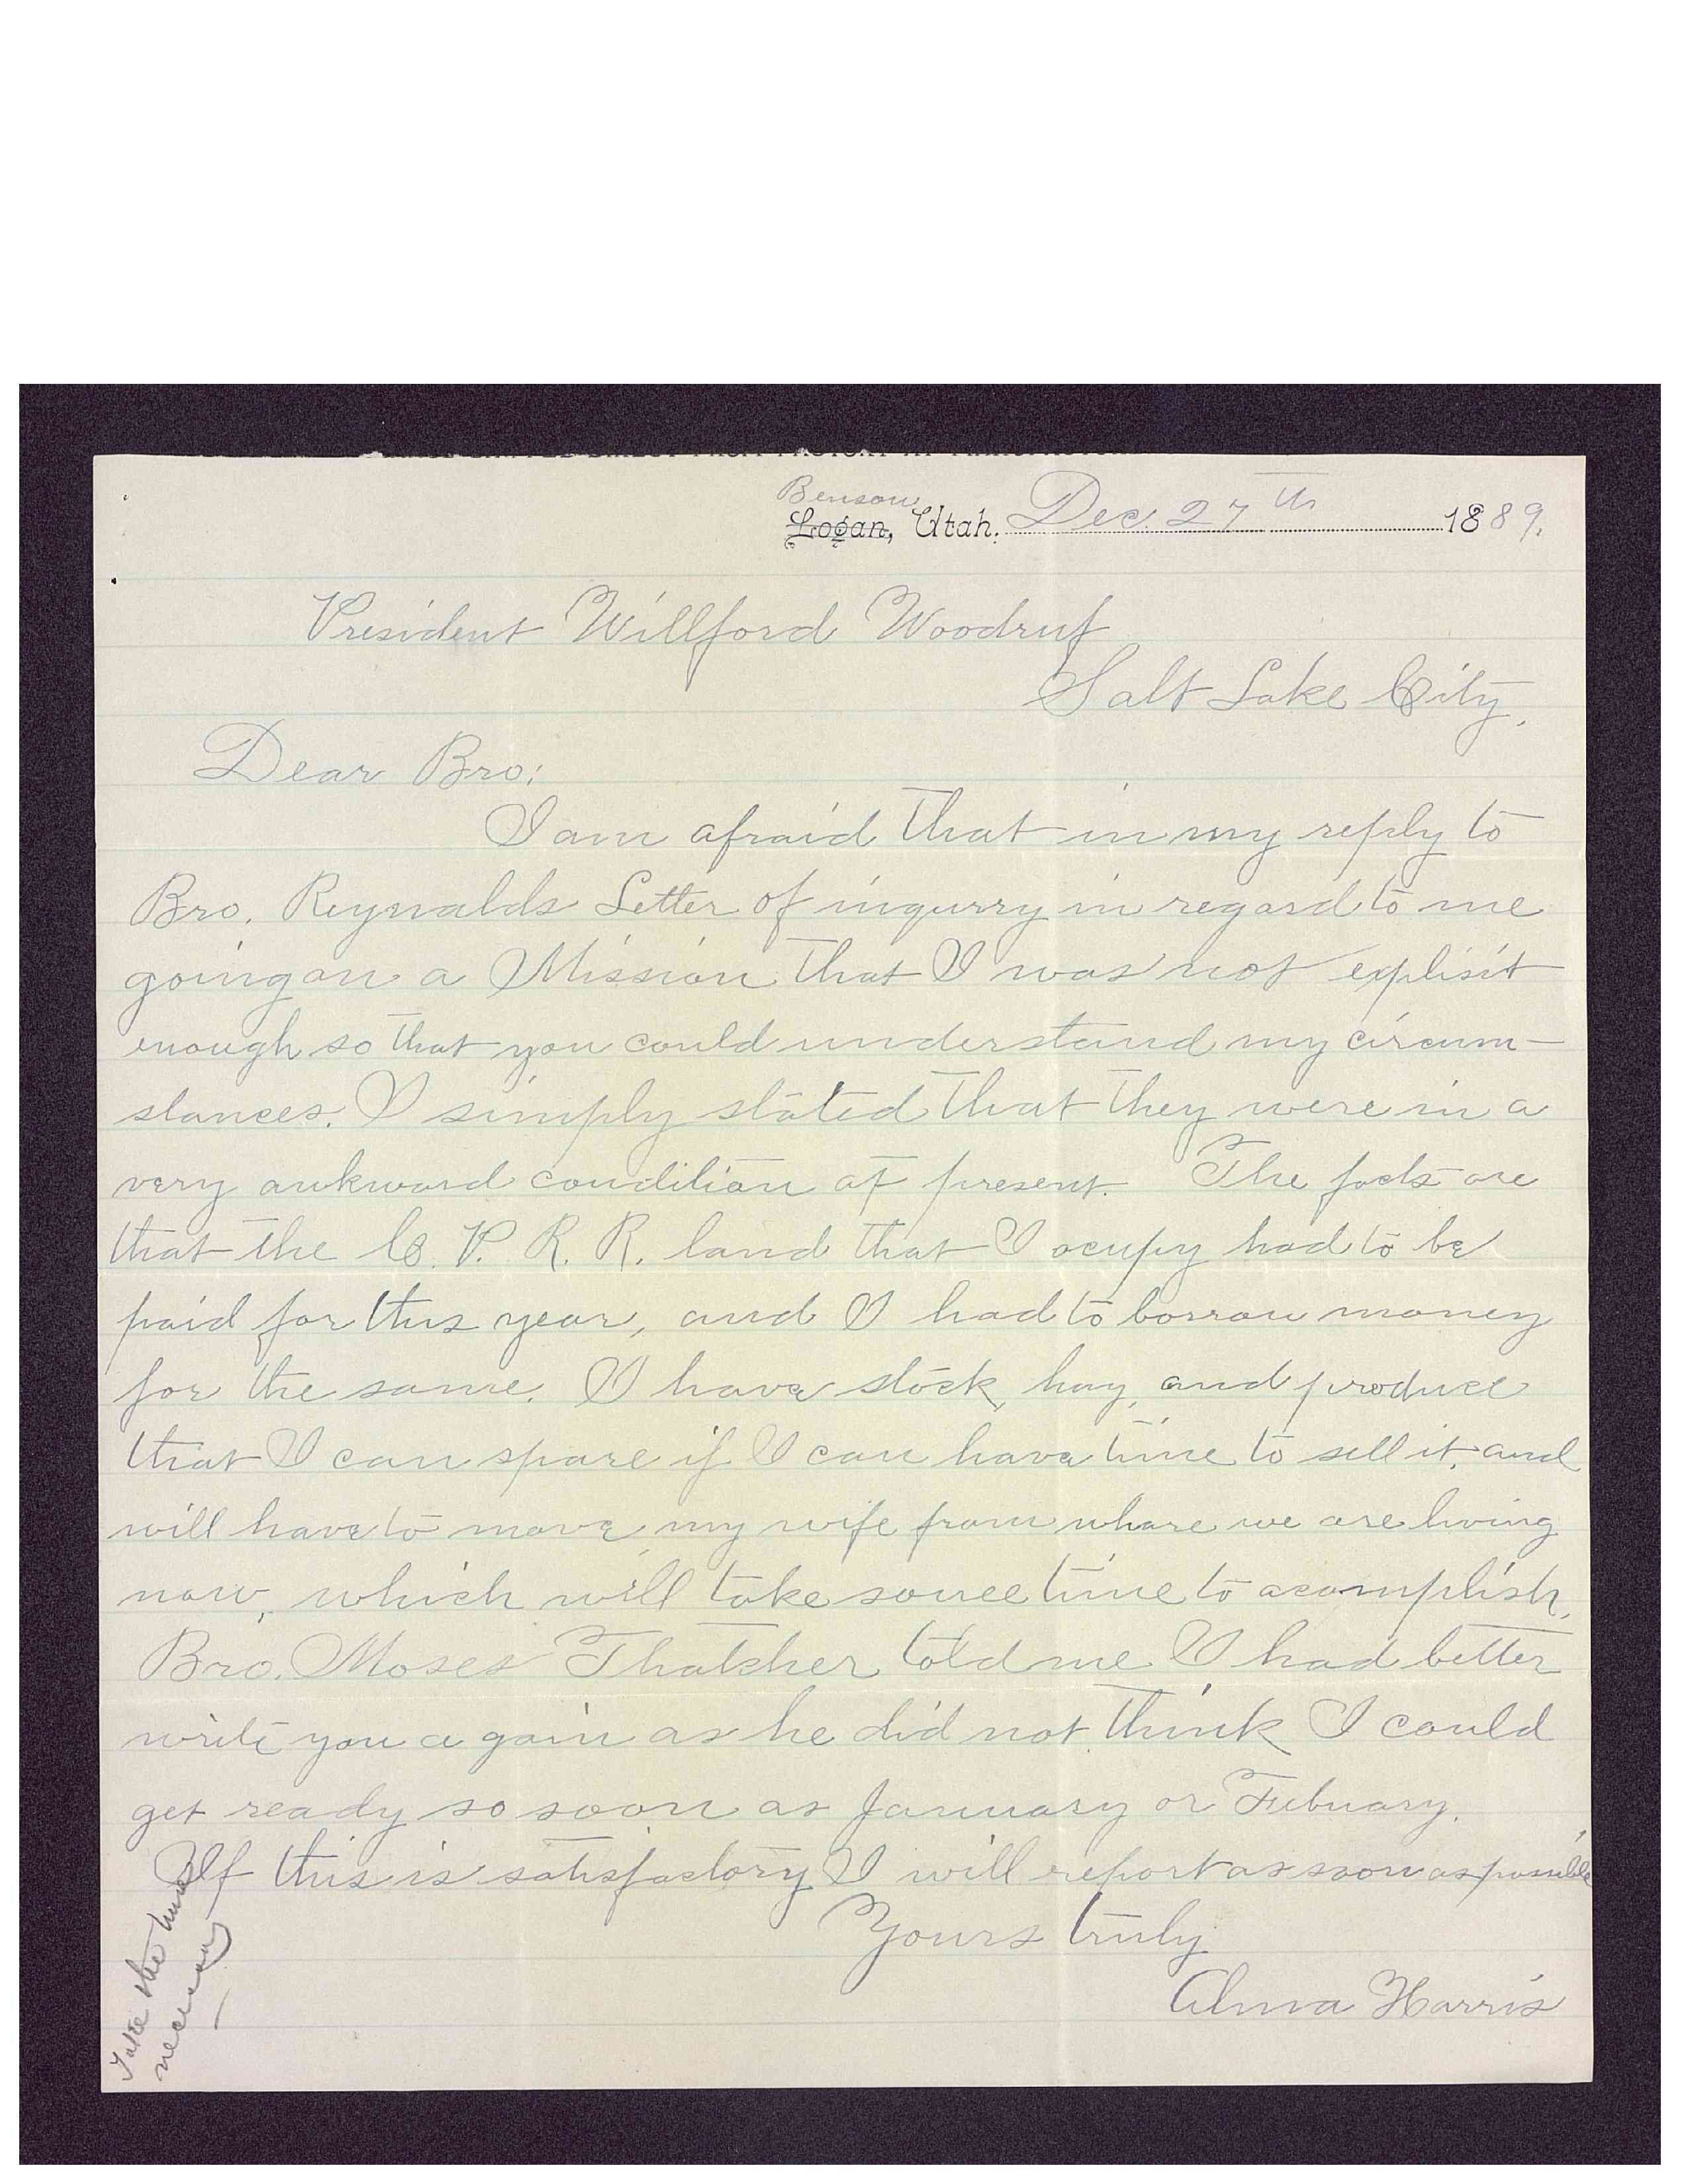 Benson
Logan, Utah. Dec 27th 1889.
President Willford Woodruf
Salt Lake City,
Dear Bro:
I am afraid that in my reply to
Bro. Reynalds Letter of inquirry in regard to me
going on a Mission that I was not explisit
enough so that you could understand my circum-
stances. I simply stated that they were in a
very awkward condition at present. The facts are
that the C. P. R. R. land that I ocupy had to be
paid for this year, and I had to borrow money
for the same. I have stock, hay, and produce
that I can spare if I can have time to sell it, and
will have to move my wife from whare we are living
now, which will take some time to acomplish.
Bro. Moses Thatcher told me I had better
write you again as he did not think I could
get ready so soon as January or Febuary.
If this is satisfactory I will report as soon as possible
Yours truly
Alma Harris
Take the time
necessary